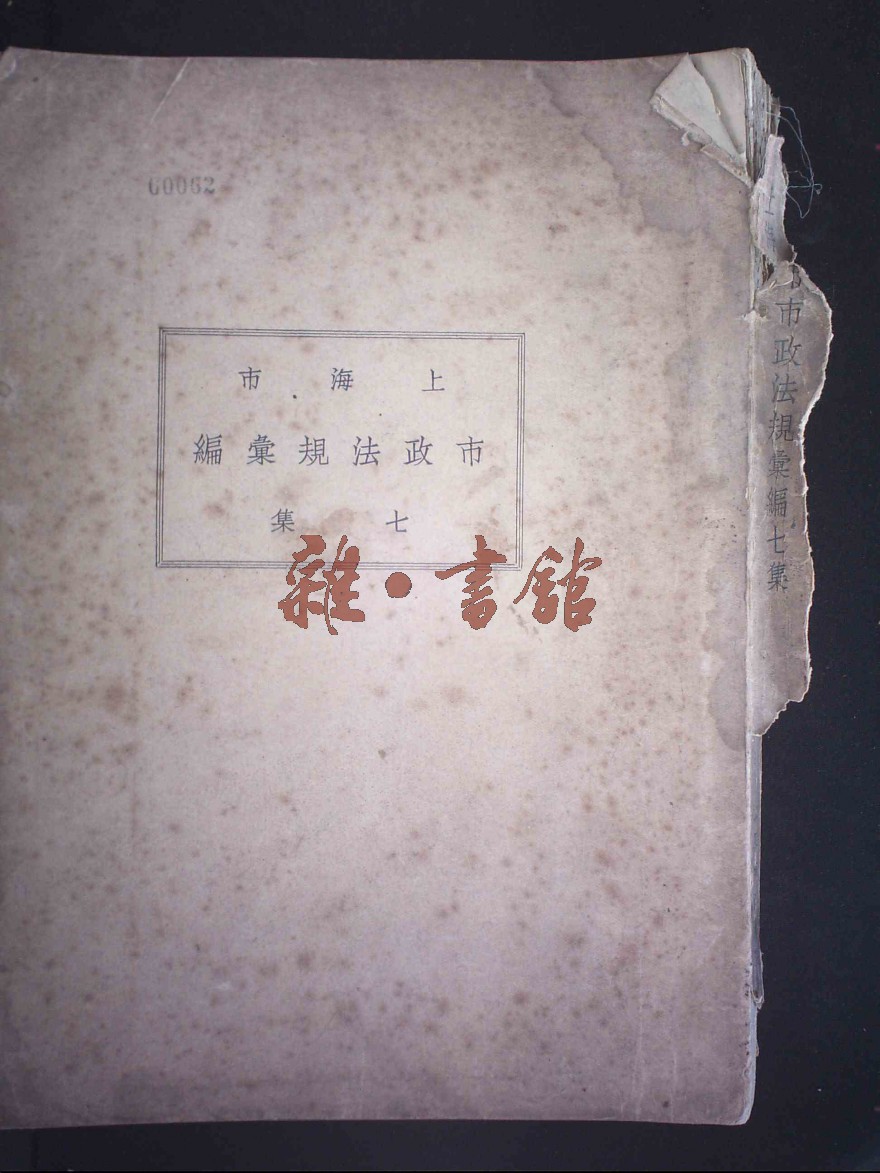 00062
上海市
市政法規彙編
七集
雜·書館
市政法規彙編七集